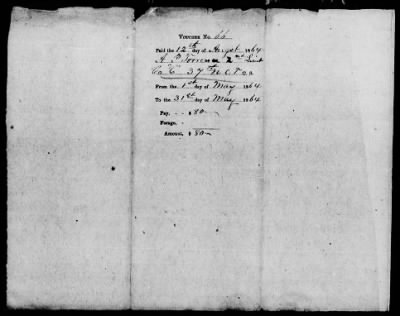 VOUCHER No. 66
Paid the 12th day of August 1864
A. P. Torrence 2nd Lieut
Co "C" 37th N.C.
From the 1st day of May 1864
To the 31st day of May 1864
Pay, - - $ 80
Forage, -
Amount, $ 80